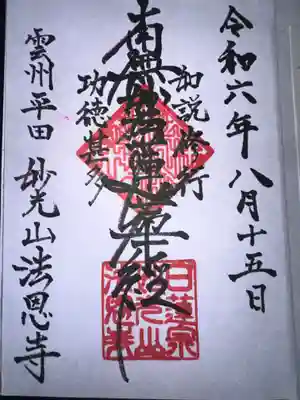 令和六年八月十五日
如説修行
南無妙法蓮華経
功徳甚多
雲州平田 妙光山法恩寺